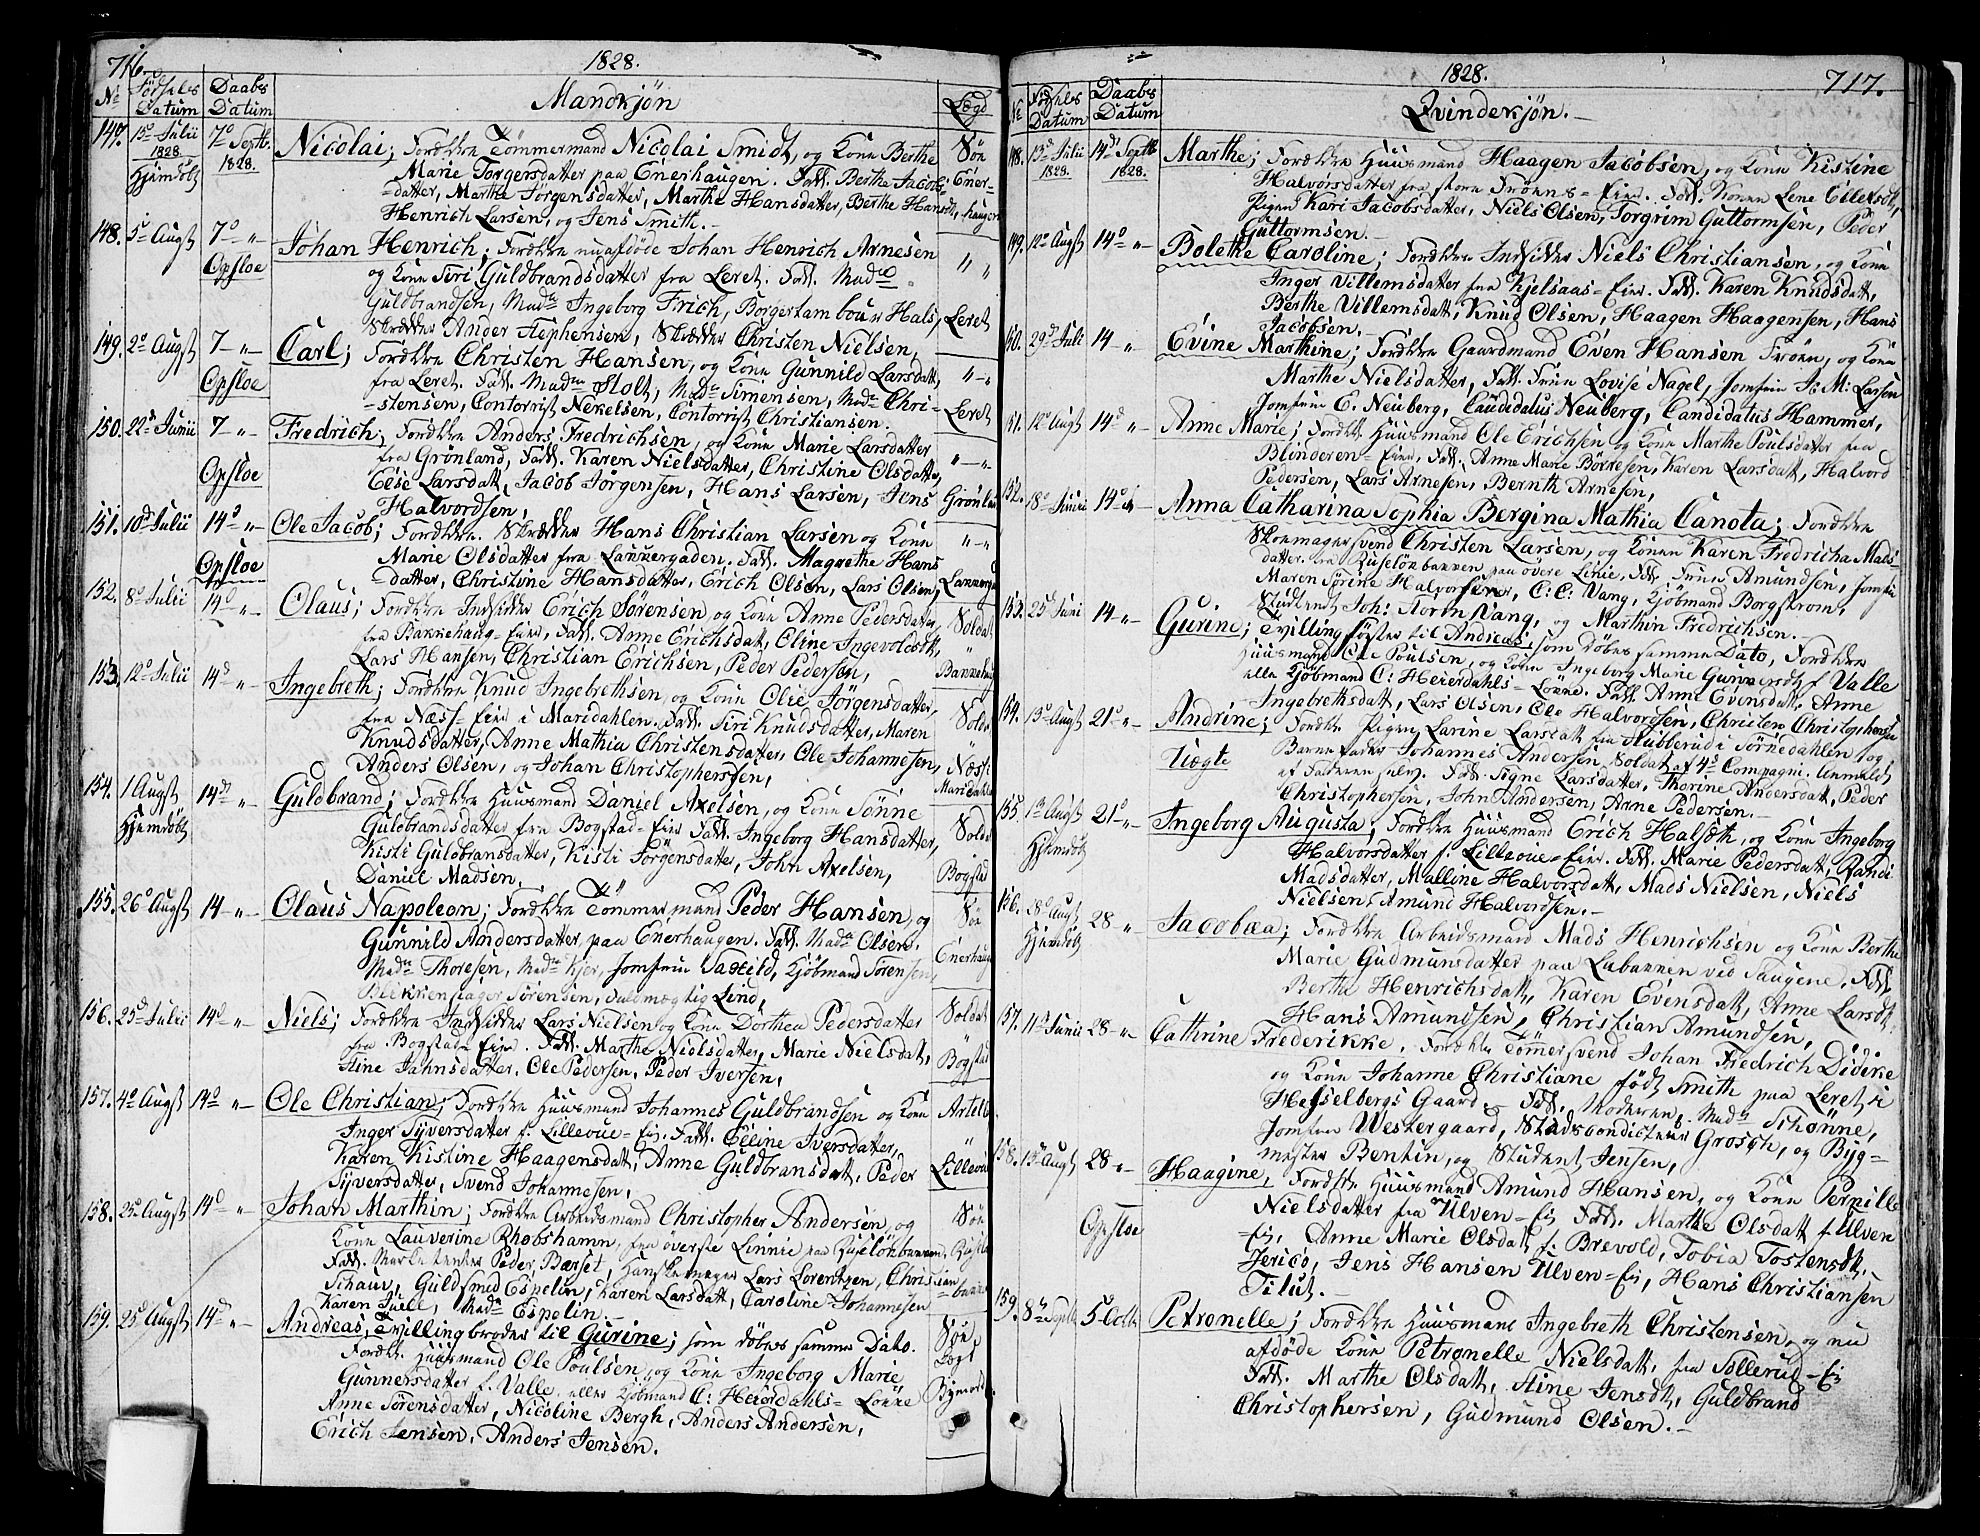 716.
1828.
No
Fødsels Datum
Daabs Datum
Mandkjøn
Lægd
147. 15de Julii 1828 Hjemdöbt 7de Septb. 1828. Nicolai; Forældre Tömmermand Nicolai Smidt, og Kone Berthe Söe
Marie Torgersdatter paa Enerhaugen. Fadd. Berthe Jacobs- Ener-
datter, Marthe Jörgensdatter, Marthe Hansdatter, Berthe Hansdt, haugen
Henrich Larsen, og Jens Smith.
148. 5te Augst 7de " Opsloe Johan Henrich; Forældre nu afdöde Johan Henrich Arnesen " "
og Kone Siri Guldbrandsdatter fra Leret. Fadd. Made
Guldbrandsen, Made Ingeborg Frich, Borgertambour Hals, Leret
Skrædder Ander Stephensen, Skrædder Christen Nielsen,
149. 2de Augst 7 " Opsloe Carl; Forældre Christen Hansen, og Kone Gunnild Larsdatt, " "
fra Leret. Fadd. Made Stolt, Made Simensen, Made Chri- Leret
-stensen, Contorrist Nekelsen, Contorrist Christiansen.
150. 22de Junii 7 " Opsloe Fredrich; Forældre Anders Fredrichsen, og Kone Marie Larsdatter " "
fra Grönland, Fadd. Karen Nielsdatter, Christine Olsdatter,
Else Larsdatt, Jacob Jörgensen, Hans Larsen, Jens Grönland
Halvordsen,
151. 10de Julii 14de " Opsloe Ole Jacob; Forældre Skrædder Hans Christian Larsen og Kone " "
Marie Olsdatter fra Lannergaden. Fadd. Magrethe Hans
datter, Christine Hansdatter, Erich Olsen, Lars Olsen, Lannerga
152. 8de Julii 14de " Olaus; Forældre Indsidder Erich Sörensen og Kone Anne Pedersdatter, Soldat
fra Bakkehaug-Eier, Fadd. Anne Erichsdatt, Eline Ingevoldsdt, "
Lars Hansen, Christian Erichsen, Peder Pedersen,
153. 12de Julii 14de " Ingebreth; Forældre Knud Ingebrethsen, og Kone Olie Jörgensdatter, Sold
fra Næss-Eier i Maridahlen. Fadd. Siri Knudsdatter, Maren "
Knudsdatter, Anne Mathia Christensdatter, Ole Johannesen, Næss i
Anders Olsen, og Johan Christophersen, Maridahl
154. 1 Augst Hjemdöbt 14de " Guldbrand; Forældre Huusmand Daniel Axelsen, og Kone Sönne
Guldbrandsdatter fra Bogstad-Eier Fadd. Ingeborg Hansdatter, Sold
Kisti Guldbransdatter, Kisti Jörgensdatter, John Axelsen, Bogstad
Daniel Madsen.
155. 26de Augst 14 " Olaus Napoleon; Forældre Tömmermand Peder Hansen, og Söe
Gunnild Andersdatter, paa Enerhaugen. Fadd. Made Olsen, Enerhaug
Made Thoresen, Made Kjer, Jomfrue Saxild, Kjöbmand Sörensen,
Blikkenslager Sörensen, Fuldmægtig Lind,
156. 25de Julii 14de " Niels; Forældre Indsidder Lars Nielsen og Kone Dorthea Pedersdatter Soldat
fra Bogstad-Eier. Fadd. Marthe Nielsdatter, Marie Nielsdat, "
Stine Jahnsdatter, Ole Pedersen, Peder Iversen, Bogstad
157. 4de Augst 14de " Ole Christian; Forældre Huusmand Johannes Guldbrandsen og Kone Artelle
Inger Syversdatter f. Lillevue-Eie. Fadd. Eline Iversdatter, "
Karen Kistine Haagensdatt, Anne Guldbransdatt, Peder Lillevue
Syversdatter, Svend Johannesen,
158. 25de Augst 14de " Johan Marthin; Forældre Arbeidsmand Christopher Andersen, og Söe
Kone Lauverine Rhobshamn, fra överste Linnie paa Ruselökbannen,
Fadd. Marketenter Peder Bærset, Handskemager Lars Lorentzen, Christian
Schaus, Guldsmed Espelin, Karen Larsdatt, Caroline Johannesen
Karen Juell, Made Espelin.
159. 25de Augst 14de " Andreas, Tvillingbroder til Gurine; som döbes samme Dato. Söe
Foræld. Huusmand Ole Poulsen, og Kone Ingeborg Marie Lægd
Gunnersdatter f. Valle, eller Kjöbmand C: Heierdahls-Lökke Bymark
Anne Sörensdatter, Nicoline Bergh, Anders Andersen,
Erich Jensen, Anders Jensen.
1828.
717.
No
Fødsels Datum
Daabs Datum
Qvindekjön.
148. 13de Julii 1828. 14de Septb 1828. Marthe; Forældre Huusmand Haagen Jacobsen, og Kone Kistine
Halvorsdatter fra store Frönns-Eier. Fad. Konen Lene Ellefsdt,
Pigen Kari Jacobsdatter, Niels Olsen, Torgrim Guttormsen, Peder
Guttormsen.
149. 12de Augst 14de " Bolethe Caroline; Forældre Indsidder Niels Christiansen, og Kone
Inger Villemsdatter fra Kjelsaas-Eier. Fadd. Karen Knudsdatt,
Berthe Villemsdatt, Knud Olsen, Haagen Haagensen, Hans
Jacobsen.
150. 29de Juli 14 " Evine Marthine; Forældre Gaardmand Even Hansen Fröen, og Kone
Marthe Nielsdatter, Fadd. Frue Lovise Nagel, Jomfrue S: M: Larsen
Jomfrue E. Neuberg, Candidatus Neuberg, Candidatus Hammer,
151. 12de Augst 14de " Anne Marie; Foræld. Huusmand Ole Erichsen og Kone Marthe Poulsdatter fra
Blinderen-Eier, Fad. Anne Marie Börresen, Karen Larsdatt, Halvord
Pedersen, Lars Arnesen, Bernth Arnesen,
152. 18de Junii 14de " Anna Catharina Sophia Bergina Mathia Canota; Forældre
Skoemagersvend Christen Larsen, og Konen Karen Fredricha Mads-
datter fra Ruselökbannen paa övere Linie, Fadd. Frue Amundsen, Jomfrue
Maren Sörine Halvorsen, C: C: Vang, Kjöbmand Borgström,
Student Joh: Noren Vang, og Marthin Fredrichsen.
153. 25de Juni 14 " Gurine; Tvillingsöster til Andreas, som döbes samme Dato, Forældre
Huusmand Ole Poulsen, og Kone Ingeborg Marie Gunnersdtr f. Valle
eller Kjöbmand C: Heierdahls-Lökke. Fadd. Anne Evensdatt, Anne
Ingebrethsdatt, Lars Olsen, Ole Halvordsen, Christen Christophersen
154. 13de Augst 21de " Andrine; Forældre Pigen Larine Larsdatt fra Stubberud i Sörkedahlen, og
Uægte Barnefader Johannes Andersen Soldat af 4de Compagni. Anmeldt
af Faderen selv. Fadd. Signe Larsdatter, Thorine Andersdatt, Peder
Christophersen, John Andersen, Arne Pedersen.
155. 1ste Augst Hjemdöbt 21de " Ingeborg Augusta; Forældre Huusmand Erich Halsdth, og Kone Ingeborg
Halvorsdatter f. Lillevue-Eier. Fadd. Marie Pedersdatt, Randi
Madsdatter, Malline Halvorsdatt, Mads Nielsen, Niels
Nielsen, Amund Halvordsen.
156. 28de Augst Hjemdöbt 28 " Jacobæa; Forældre Arbeidsmand Mads Henrichsen og Kone Berthe
Marie Gudmunsdatter paa Labannen ved Saugene, Fadd.
Berthe Henrichsdatt, Karen Evensdatt, Anne Larsdt
Hans Amundsen, Christian Amundsen,
157. 11de Junii 28 " Cathrine Frederikke. Forældre Tömmersvend Johan Fredrich Didrike
og Kone Johanne Christiane födt Smith paa Leret i
Hesselbergs Gaard. Fadd. Moderen, Made Schönne,
Jomfrue Westergaard, Stadsconducteur Grosch, og Byg-
mester Bentin, og Student Jensen,
158. 15de Augst 28 " Opsloe Haagine, Forældre Huusmand Amund Hansen, og Kone Pernille
Nielsdatter fra Ulven-Eie Fadd. Marthe Olsdatt f. Ulven
-Eie, Anne Marie Olsdatt f. Brevold, Tobia Tostensdtt.
Jericò, Jens Hansen Ulven-Eie, Hans Christiansen
Tilut.
159. 8de Septb 5te Octb Petronelle; Forældre Huusmand Ingebreth Christensen, og nu
afdöde Kone Petronelle Nielsdatt, fra Sollerud-Eie
Fadd. Marthe Olsdatt, Stine Jensdt, Guldbrand
Christophersen, Gudmund Olsen.